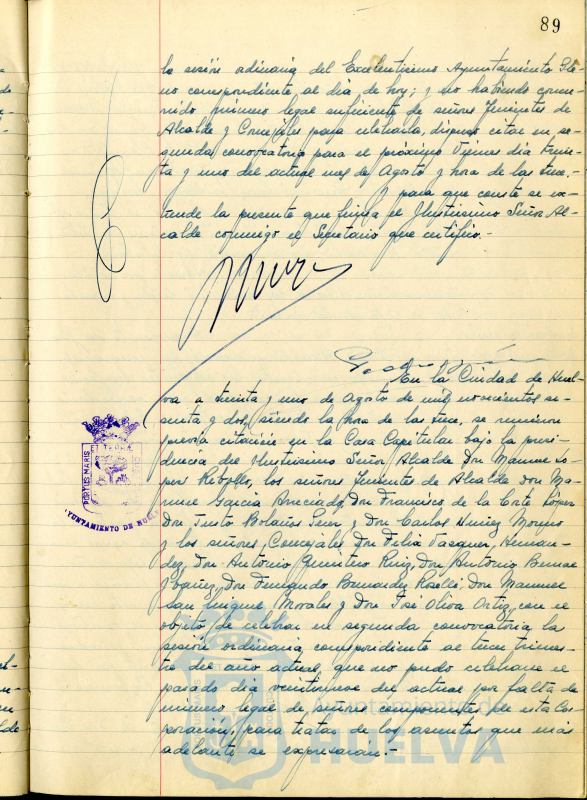 89
la sesión ordinaria del Excelentísimo Ayuntamiento Ple-
no correspondiente al día de hoy; y no habiendo concu-
rrido número legal suficiente de señores Tenientes de
Alcalde y Concejales para celebrarla, dispuso citar en se-
gunda convocatoria para el próximo Viernes día trein-
ta y uno del actual mes de Agosto y hora de las trece.-
Y para que conste se ex-
tiende la presente que firma el Ilustrísimo Señor Al-
calde conmigo el Secretario que certifico.-
En la Ciudad de Huel-
va a treinta y uno de Agosto de mil novecientos se-
senta y dos, siendo la hora de las trece, se reunieron
previa citación en la Casa Capitular bajo la presi-
dencia del Ilustrísimo Señor Alcalde Don Manuel Ló-
pez Rebollo, los señores Tenientes de Alcalde don Ma-
nuel García Don Francisco de la Corte López
Don Justo Bolaños y Don Carlos Núñez Moreno
y los señores Concejales Don Félix Vázquez Hernán-
dez, Don Antonio Ruiz, Don Antonio
Don Fernando Don Manuel
San Miguel Morales y Don José Oliva Ortiz, con el
objeto de celebrar en segunda convocatoria la
sesión ordinaria correspondiente al tercer trimes-
tre del año actual, que no pudo celebrarse el
pasado día veintinueve del actual por falta de
número legal de señores componentes de esta Cor-
poración, para tratar de los asuntos que más
adelante se expresarán.-
PORTUS MARIS
AYUNTAMIENTO DE HUELVA
Ayuntamiento de
HUELVA